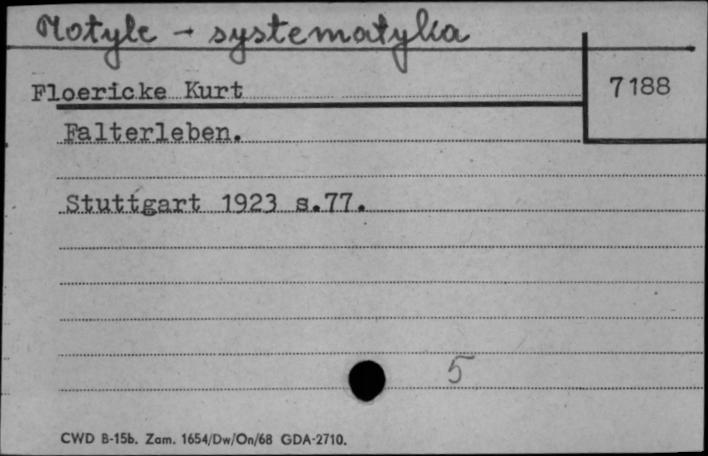 Motyle - systematyka
Floericke Kurt
7188
Falterleben.
Stuttgart 1923 s.77.
5
CWD B-15b. Zam. 1654/Dw/On/68 GDA-2710.